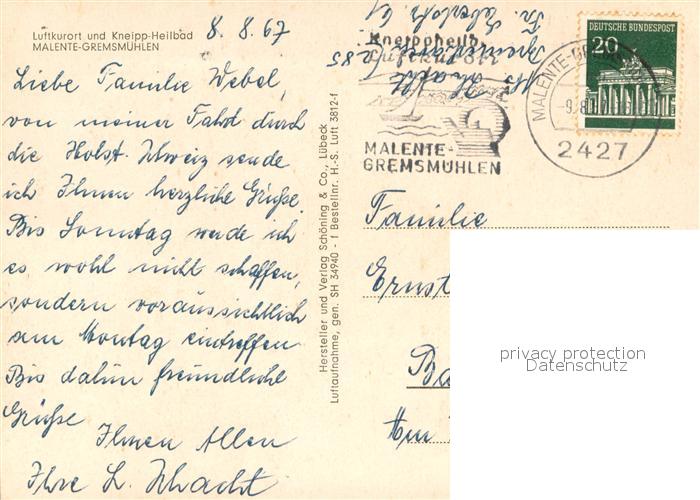 Luftkurort und Kneipp-Heilbad
MALENTE-GREMSMÜHLEN
8. 8. 67
Liebe Familie Webel,
von meiner Fahrt durch
die Holst. Schweiz sende
ich Ihnen herzliche Grüße.
Bis Sonntag werde ich
es wohl nicht schaffen,
sondern voraussichtlich
am Montag eintreffen
Bis dahin freundliche
Grüße
Ihnen Allen
Ihre L. Schacht
Hersteller und Verlag Schöning & Co., Lübeck
Luftaufnahme, gen.: SH 34940 - f Bestellnr. H.-S. Luft 3812-f
Kneippheilb
Luftkurort
MALENTE-
GREMSMÜHLEN
DEUTSCHE BUNDESPOST
20
MALENTE-GREMS
-9.8
2427
85
Familie
Ernst
Ba
Am
privacy protection
Datenschutz